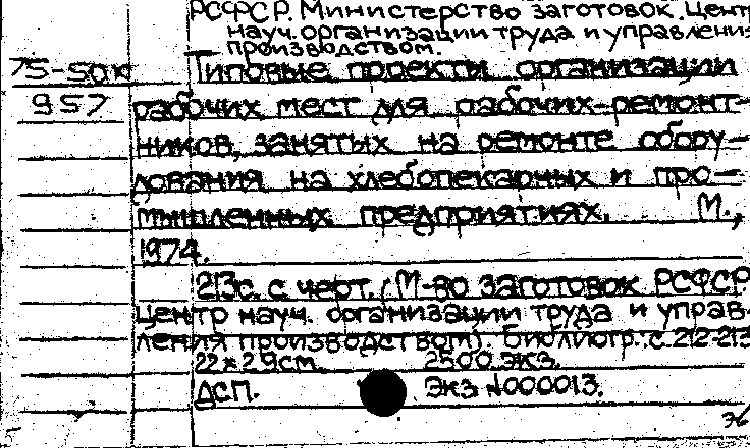 РСФСР. Министерство заготовок. Цент
науч. организации труда и управлени
производством.
75-50к Типовые проекты организации
957 рабочих мест для рабочих-ремонт-
ников, занятых на ремонте обору-
дования на хлебопекарных и про-
мышленных предприятиях. М.,
1974.
213с. с черт. (М-во заготовок РСФСР.
Центр науч. организации труда и управ-
ления производством). Библиогр.: с. 212-213
22×29см. 2500 экз.
ДСП. Экз №000013.